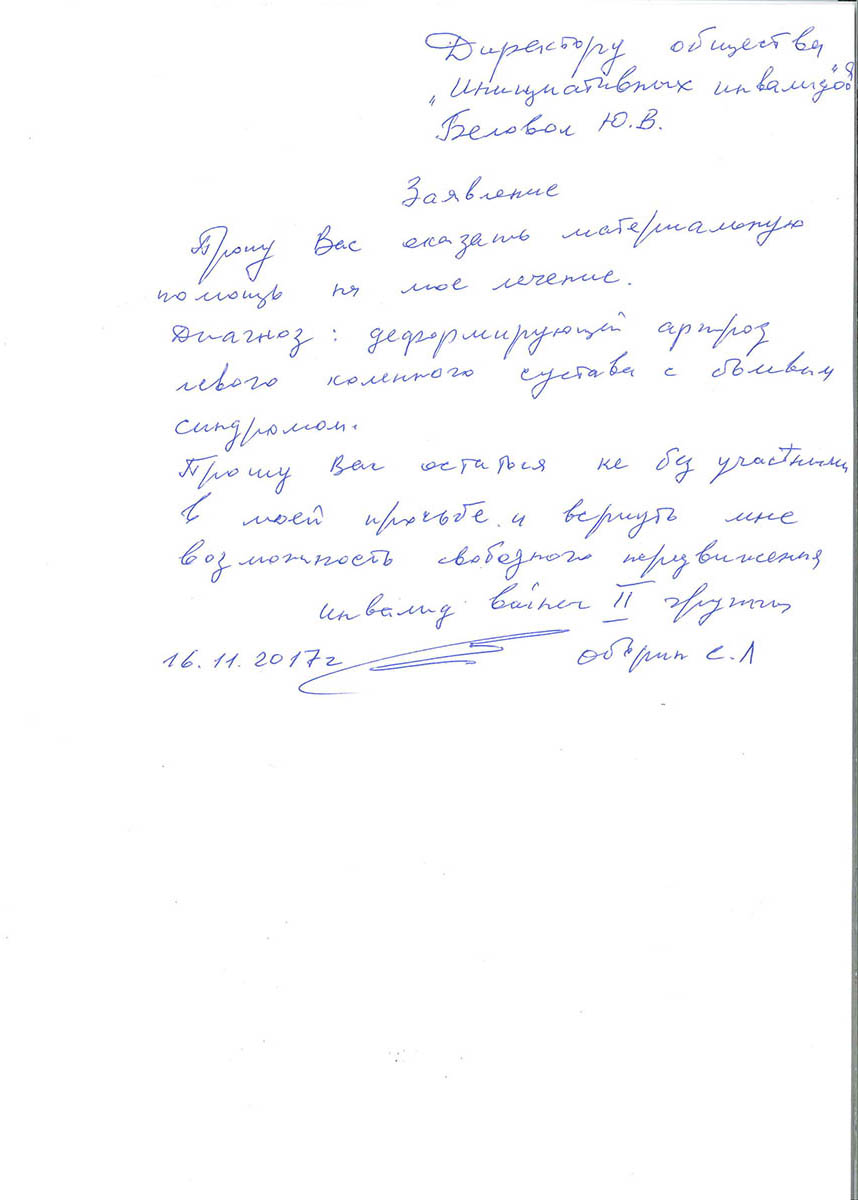 Директору общества
„Инициативных инвалидов"
Беловол Ю.В.
Заявление
Прошу Вас оказать материальную
помощь на мое лечение.
Диагноз: деформирующий артроз
левого коленного сустава с болевым
синдромом.
Прошу Вас остаться не без участными
в моей прозьбе и вернуть мне
возможность свободного передвижения
инвалид войны II группы
16.11.2017г С.Л